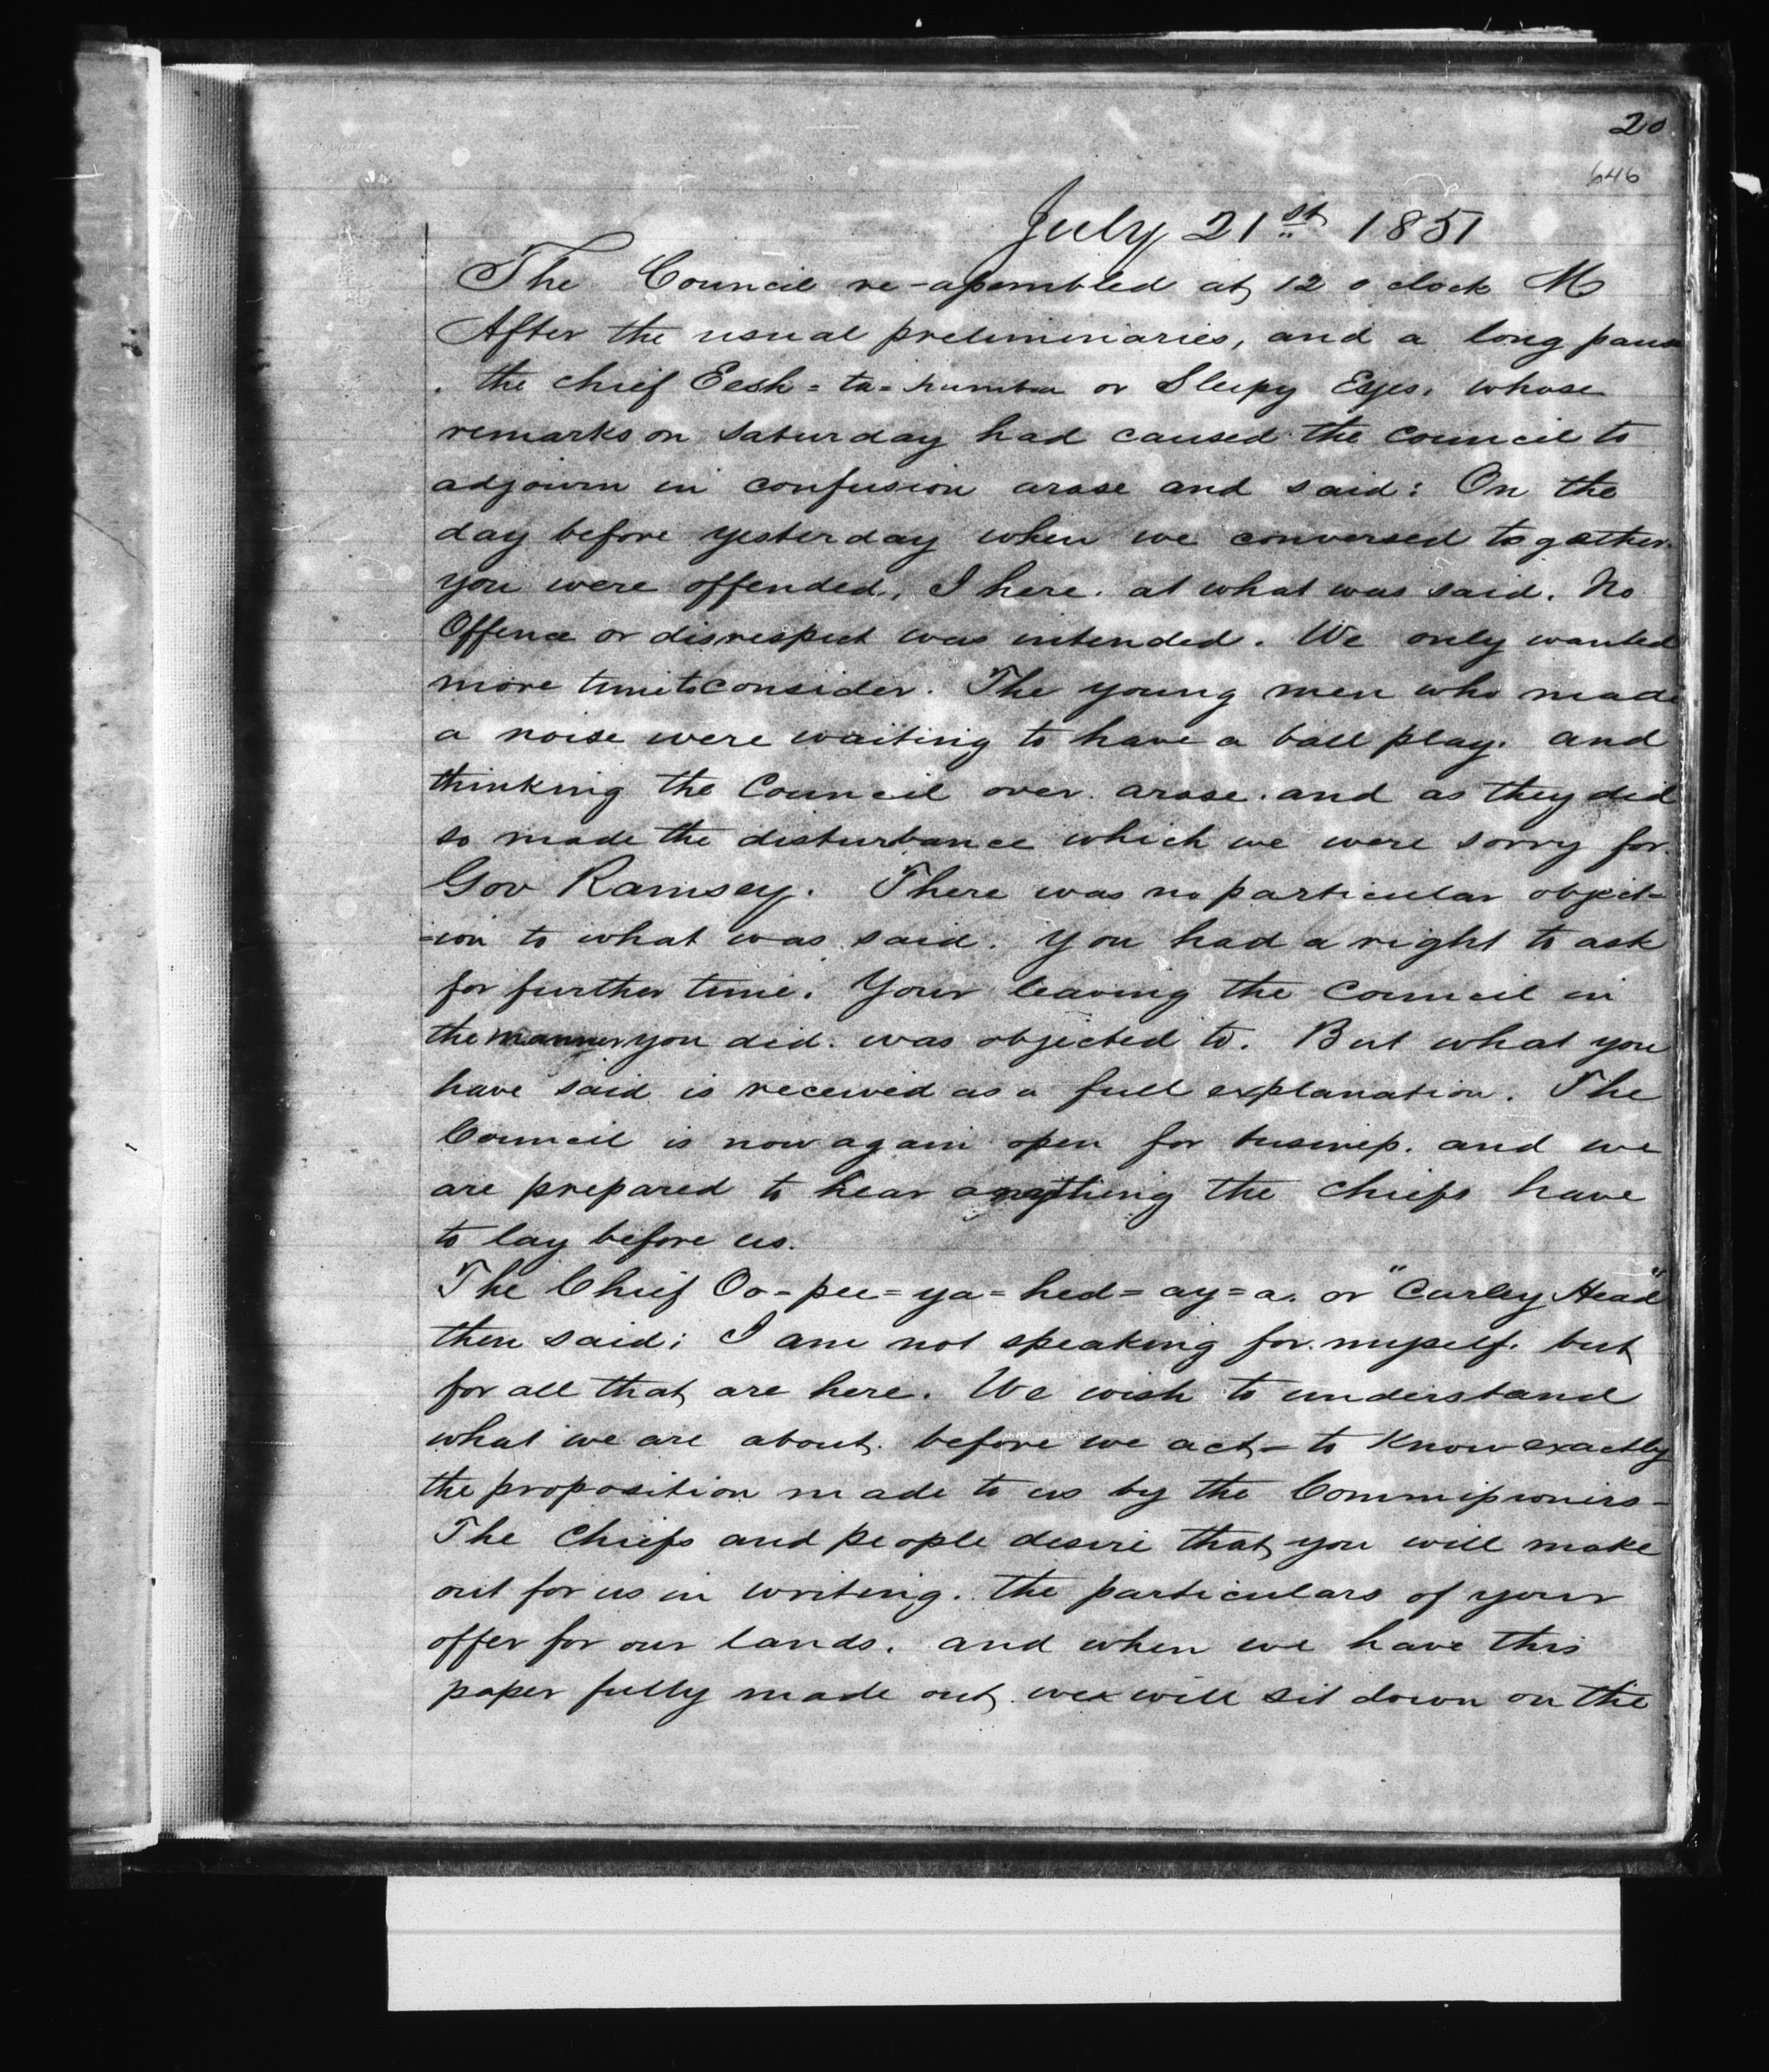 20
646
July 21st 1851
The Council re-assembled at 12 o clock M
After the usual preliminaries, and a long pause
. the chief Eesh=ta=humba or Sleepy Eyes. whose
remarks on Saturday had caused the council to
adjourn in confusion arose and said: On the
day before yesterday when we conversed together.
you were offended., I here. at what was said. No
Offence or disrespect was intended. We only wanted
more time to consider. The young men who made
a noise were waiting to have a ball play. and
thinking the Council over. arose. and as they did
so made the disturbance which we were sorry for.
Gov Ramsey. There was no particular object=
=ion to what was said. You had a right to ask
for further time. Your leaving the council in
the manner you did. was objected to. But what you
have said is received as a full explanation. The
Council is now again open for business. and we
are prepared to hear anything the chiefs have
to lay before us.
The Chief Oo-pee=ya=hed=ay=a. or "Curley Head"
then said; I am not speaking for. myself. but
for all that are here. We wish to understand
what we are about. before we act- to know exactly
the proposition made to us by the Commissioners-
The Chiefs and people desire that you will make
out for us in writing. the particulars of your
offer for our lands. and when we have this
paper fully made out we will sit down on the